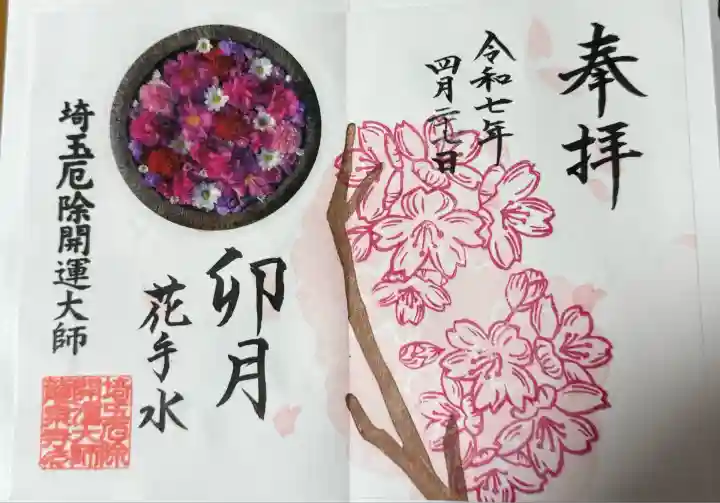 奉拝
令和七年
四月二十九日
卯月
花手水
埼玉厄除開運大師
埼玉厄除
開運大師
龍泉寺